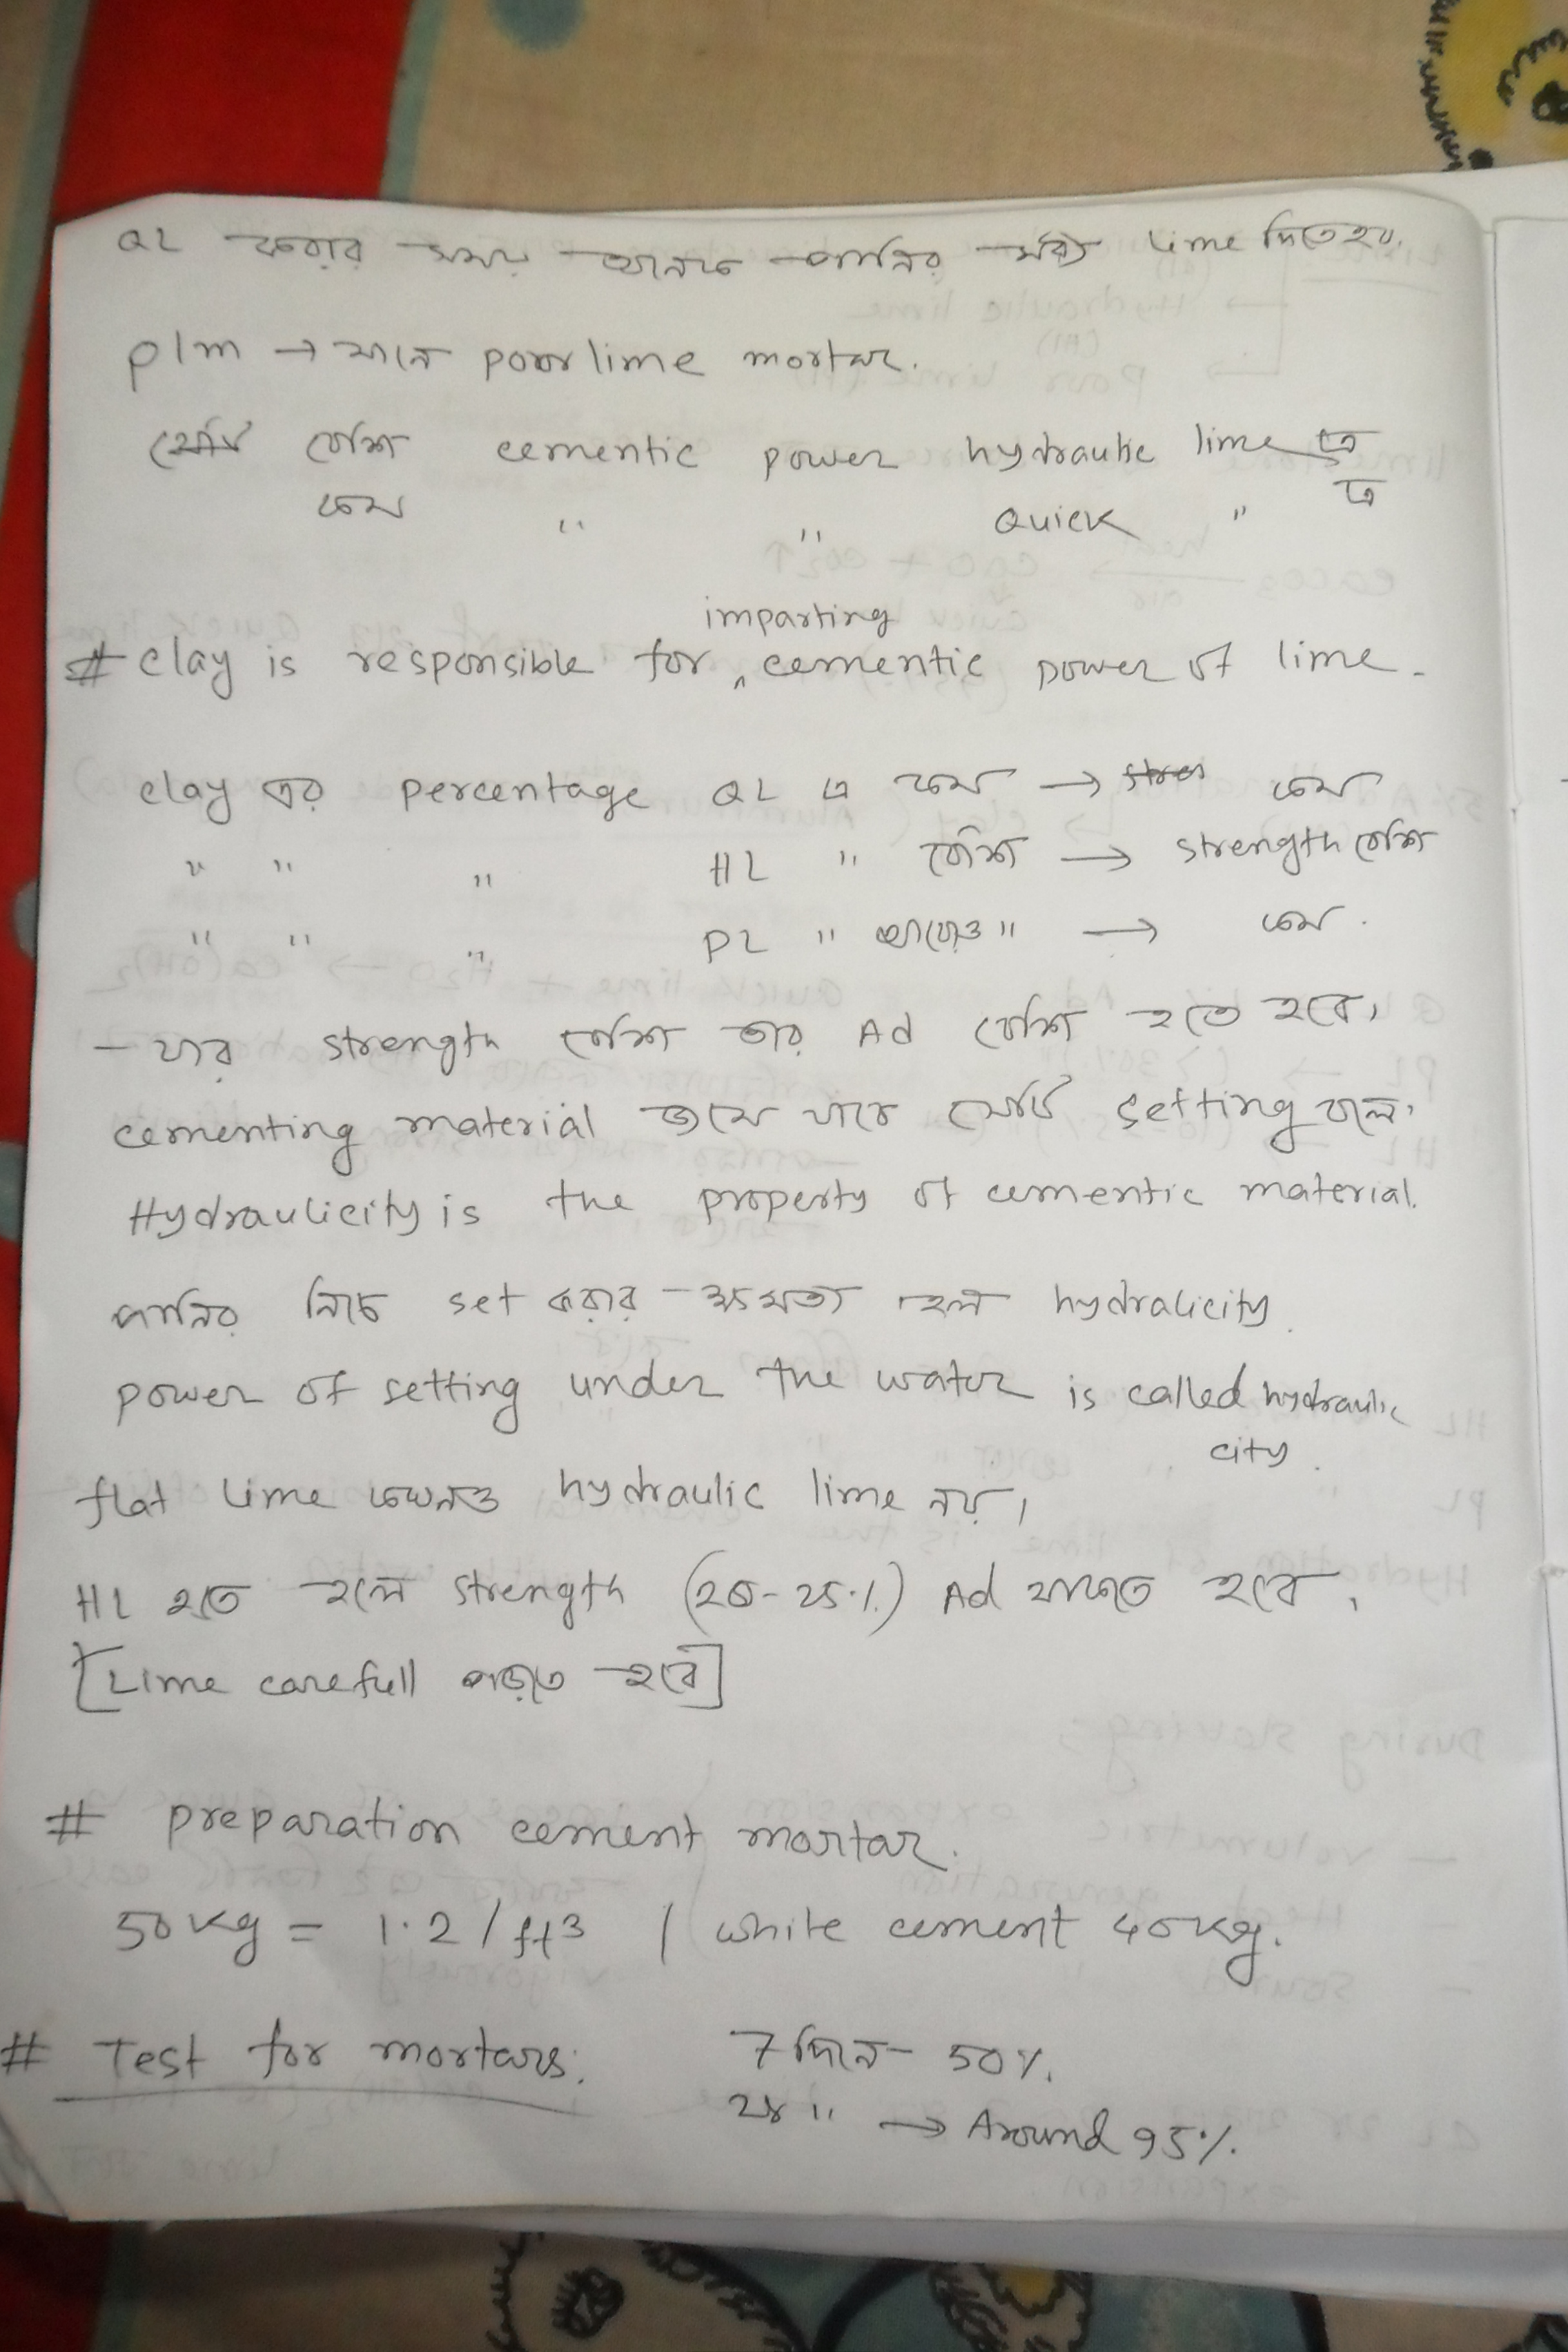 QL করার সময় অনেক পানির মধ্যে lime দিতে হব.
plm → মানে poor lime mortar.
বেশি cementic power hydraulic lime এ
কম " " Quick " এ
imparting
# clay is responsible for ^ cementic power of lime.
clay এর percentage QL এ কম → কম
" " " HL " বেশি → strength বেশি
" " " PL " " → কম.
- যার strength বেশি তার Ad বেশি হতে হবে।
cementing material জমে যাবে সেটি setting বলে।
Hydraulicity is the property of cementic material.
পানির নিচে set করার ক্ষমতা হল hydralicity.
power of setting under the water is called hydraulic
city.
flat lime কখনও hydraulic lime নয়।
HL হতে হলে strength Ad থাকতে হবে।
[Lime carefull পড়তে হবে]
# preparation cement mortar.
50 kg = 1.2 / ft3 / white cement 40 kg.
# Test for mortars: 7 দিনে - 50%.
28 " → Around 95%.